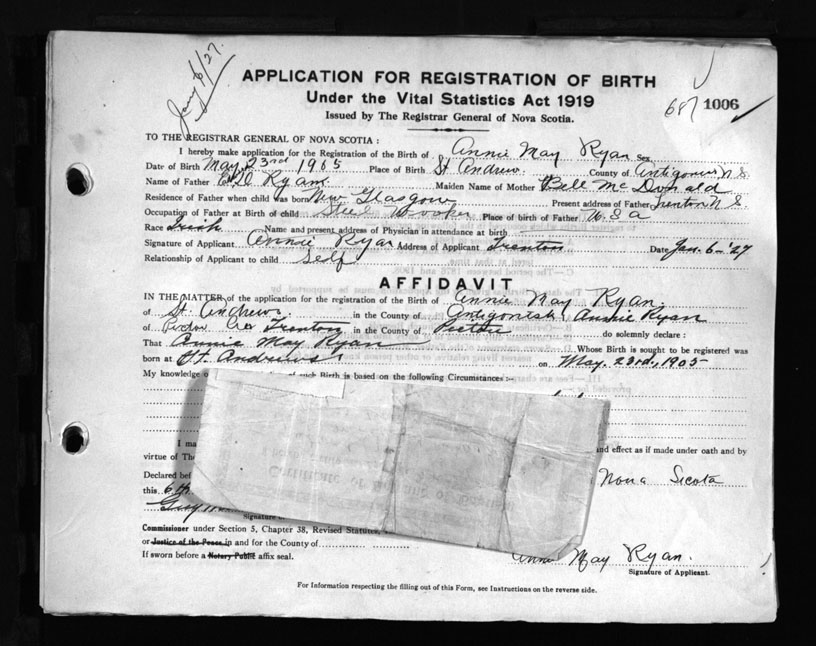 Jany 6/27.
APPLICATION FOR REGISTRATION OF BIRTH
Under the Vital Statistics Act 1919
Issued by The Registrar General of Nova Scotia.
687 1006
TO THE REGISTRAR GENERAL OF NOVA SCOTIA :
I hereby make application for the Registration of the Birth of Annie May Ryan Sex
Date of Birth May 23rd 1905 Place of Birth St Andrew County of Antigonish N.S.
Name of Father Ryan Maiden Name of Mother Bell McDonald
Residence of Father when child was born New Glasgow Present address of Father Trenton N.S.
Occupation of Father at Birth of child Steel Wooker Place of birth of Father U.S.a
Race Irish Name and present address of Physician in attendance at birth
Signature of Applicant Annie Ryan Address of Applicant Trenton Date Jan. 6-'27
Relationship of Applicant to child Self
AFFIDAVIT
IN THE MATTER of the application for the registration of the Birth of Annie May Ryan.
of St. Andrews in the County of Antigonish Annie Ryan
of Trenton in the County of Pictou do solemnly declare :
That Annie May Ryan Whose Birth is sought to be registered was
born at St. Andrews on May. 23rd, 1905
My knowledge of such Birth is based on the following Circumstances :-
I ma and effect as if made under oath and by
virtue of The
Declared bef Nova Sicota
this 6th
Signature
Commissioner under Section 5, Chapter 38, Revised Statutes,
or Justice of the Peace in and for the County of
If sworn before a Notary Public affix seal.
Annie May Ryan.
Signature of Applicant.
For Information respecting the filling out of this Form, see Instructions on the reverse side.